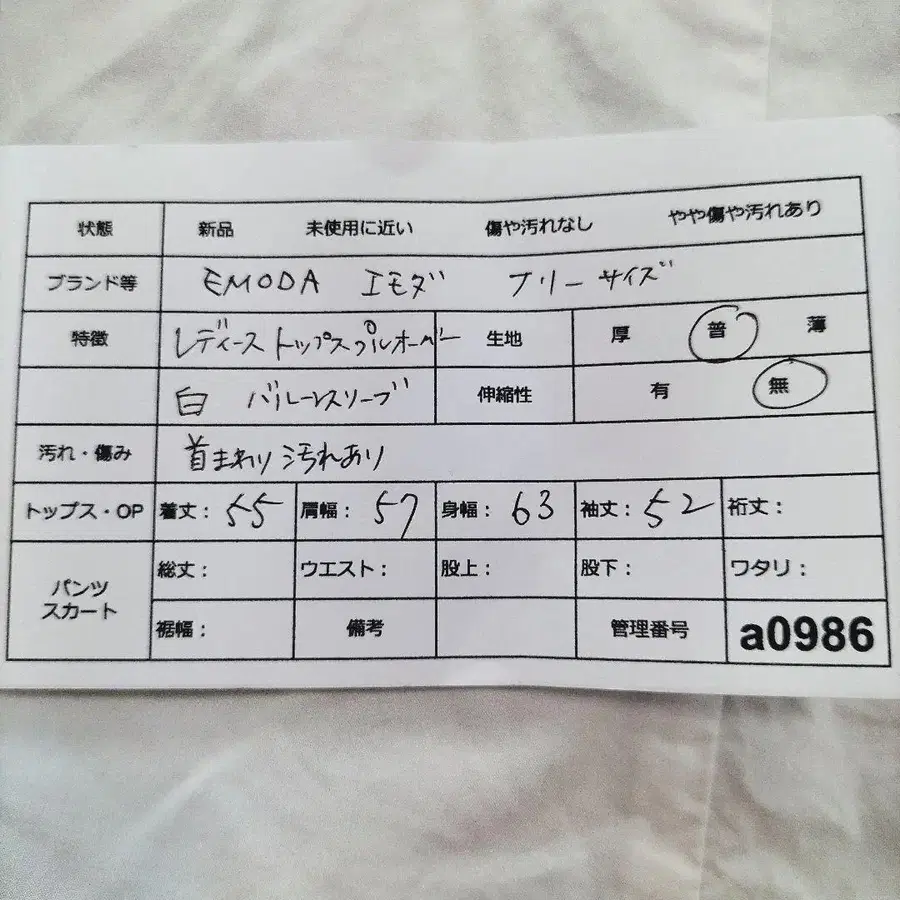 状態 新品 未使用に近い 傷や汚れなし やや傷や汚れあり
ブランド等 EMODA エモダ フリーサイズ
特徴 レディーストップスプルオーバー 生地 厚 普 薄
白 バルーンスリーブ 伸縮性 有 無
汚れ・傷み 首まわり汚れあり
トップス・OP 着丈: 55 肩幅: 57 身幅: 63 袖丈: 52 裄丈:
パンツ スカート 総丈: ウエスト: 股上: 股下: ワタリ:
裾幅: 備考 管理番号 a0986